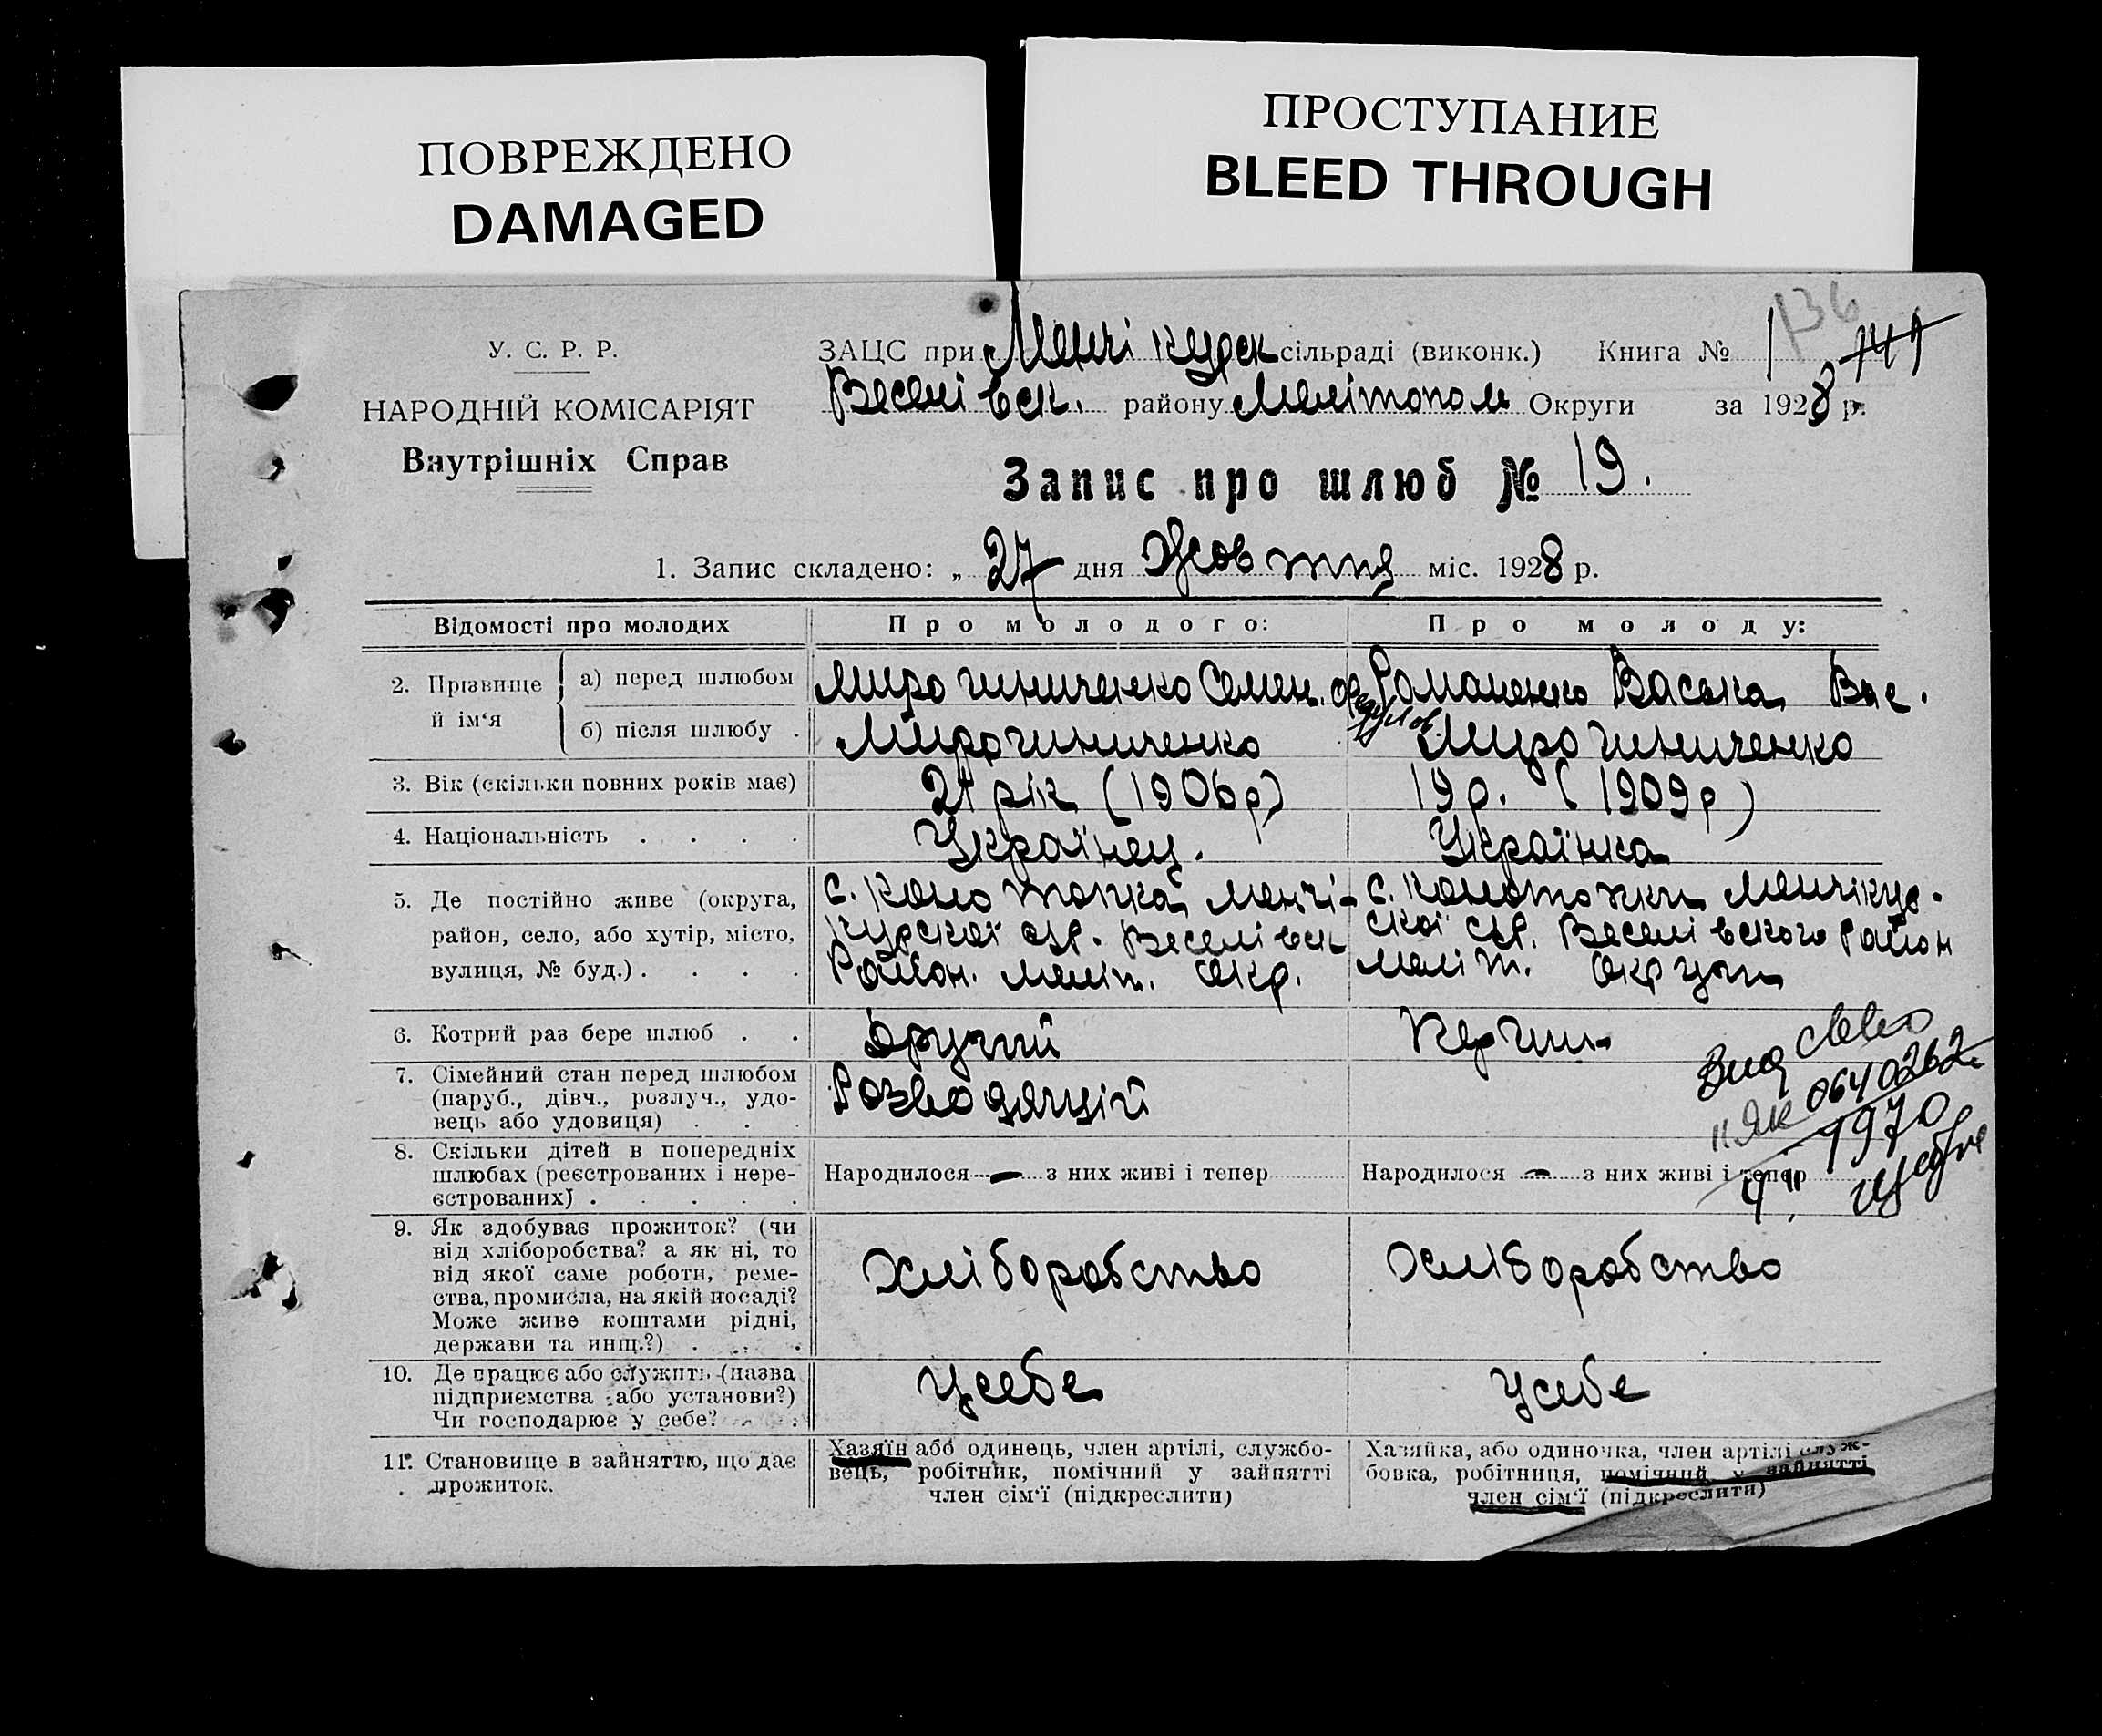 ПОВРЕЖДЕНО
DAMAGED
ПРОСТУПАНИЕ
BLEED THROUGH
136
У. С. Р. Р.
НАРОДНІЙ КОМІСАРІЯТ
Внутрішніх Справ
ЗАЦС при Менчікурск сільраді (виконк.) Книга № 1
Веселівск. району Мелітополь Округи за 1928 р.
Запис про шлюб № 19.
1. Запис складено: „ 27 дня Жовтня міс. 1928 р.
Відомості про молодих
Про молодого:
Про молоду:
2. Прізвище й ім‘я
а) перед шлюбом
Мирогниченко Семен
Романенко Васька Вас.
б) після шлюбу .
Мирогниченко
Мирогниченко
3. Вік (скільки повних років має)
21 рік (1906р)
19 р. (1909р)
4. Національність . . . .
Українец.
Українка
5. Де постійно живе (округа,
район, село, або хутір, місто,
вулиця, № буд.) . . . .
с. Конотопка Менчі-
курской с/р. Веселівск
Район. Меліт. Окр.
с. Конотопки Менчікур.
ской с/р. Веселівского Район
Меліт. Округи
6. Котрий раз бере шлюб . .
Другий
Перший
7. Сімейний стан перед шлюбом
(паруб., дівч., розлуч., удо-
вець або удовиця) . . .
Розводящій
8. Скільки дітей в попередніх
шлюбах (реєстрованих і нере-
єстрованих) . . . . .
Народилося — з них живі і тепер
Народилося — з них живі і тепер
ЯК 0640262
1970
9. Як здобуває прожиток? (чи
від хліборобства? а як ні, то
від якої саме роботи, реме-
ства, промисла, на якій посаді?
Може живе коштами рідні,
держави та инщ.?) . . .
Хліборобство
Хліборобство
10. Де працює або служить (назва
підприємства або установи?)
Чи господарює у себе? . . .
усебе
усебе
11. Становище в зайняттю, що дає
прожиток.
Хазяїн або одинець, член артілі, службо-
вець, робітник, помічний у зайнятті
член сім‘ї (підкреслити)
Хазяйка, або одиночка, член артілі служ-
бовка, робітниця, помічний у зайнятті
член сім‘ї (підкреслити)